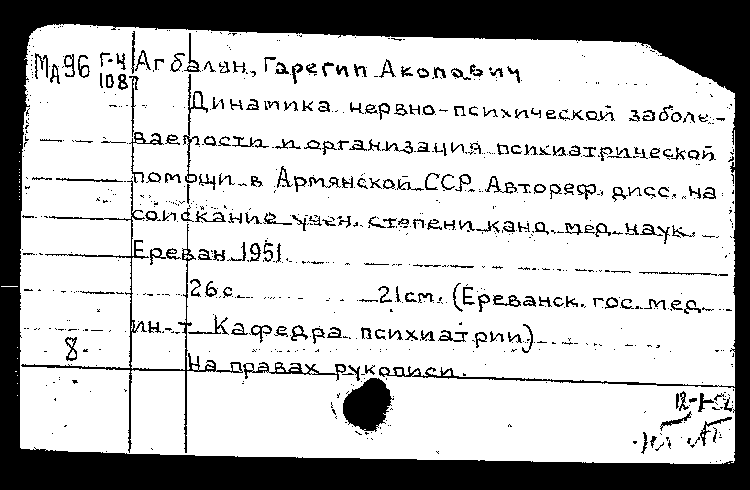 МА96 Г-4 Агбалян, Гарегин Акопович
1087
Динамика нервно-психической заболе-
ваемости и организация психиатрической
помощи в Армянской ССР. Автореф. дисс. на
соискание учен. степени канд. мед. наук.
Ереван 1951.
26 с. 21см. (Ереванск. гос. мед.
ин-т Кафедра психиатрии)
8.
На правах рукописи.
12-1-52